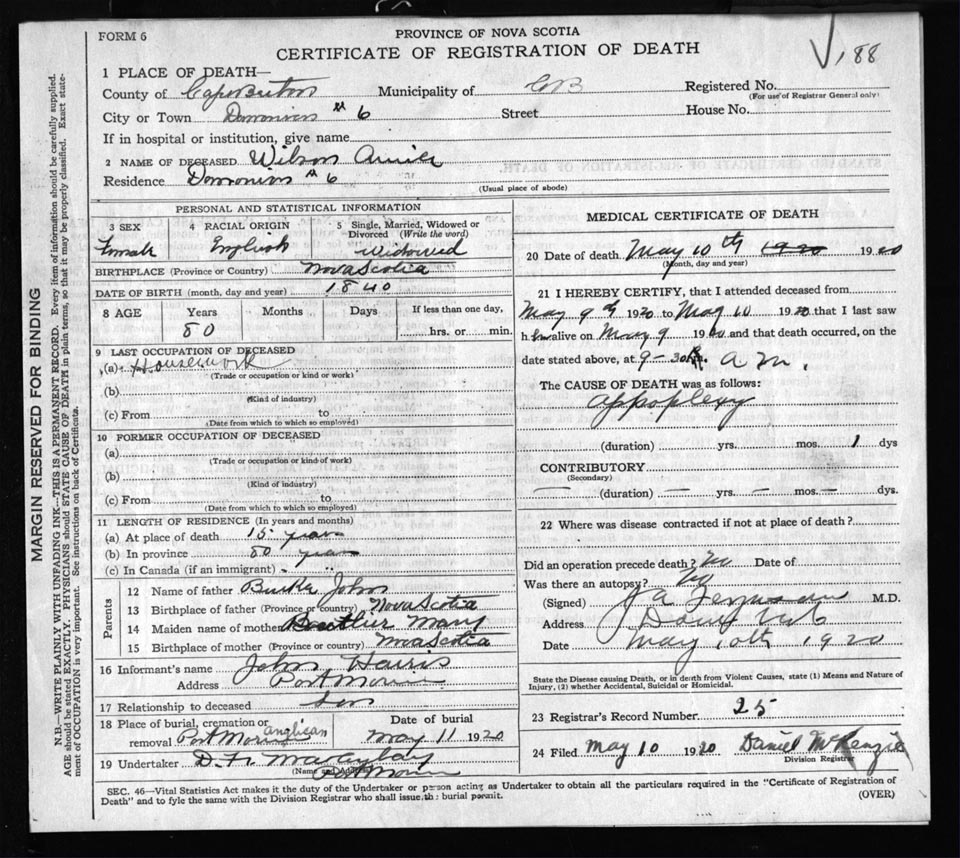 FORM 6
PROVINCE OF NOVA SCOTIA
CERTIFICATE OF REGISTRATION OF DEATH
188
1 PLACE OF DEATH—
County of Cape Breton Municipality of CB Registered No.
(For use of Registrar General only)
City or Town Dominion # 6 Street House No.
If in hospital or institution, give name
2 NAME OF DECEASED Wilson Annie
Residence Dominion # 6
(Usual place of abode)
PERSONAL AND STATISTICAL INFORMATION
3 SEX 4 RACIAL ORIGIN 5 Single, Married, Widowed or Divorced (Write the word)
Female English Widowed
BIRTHPLACE (Province or Country) Nova Scotia
DATE OF BIRTH (month, day and year) 1840
8 AGE Years Months Days If less than one day,
80 hrs. or min.
9 LAST OCCUPATION OF DECEASED
(a) Housework
(Trade or occupation or kind or work)
(b)
(Kind of industry)
(c) From to
(Date from which to which so employed)
10 FORMER OCCUPATION OF DECEASED
(a)
(Trade or occupation or kind of work)
(b)
(Kind of industry)
(c) From to
(Date from which to which so employed)
11 LENGTH OF RESIDENCE (In years and months)
(a) At place of death 15 years
(b) In province 80 years
(c) In Canada (if an immigrant)
Parents
12 Name of father Burke John
13 Birthplace of father (Province or country) Nova Scotia
14 Maiden name of mother Mary
15 Birthplace of mother (Province or country) Nova Scotia
16 Informant's name John Harris
Address Port Morien
17 Relationship to deceased Son
18 Place of burial, cremation or removal Port Morien anglican Date of burial May 11 1920
19 Undertaker D. F.
(Name and Address) Port Morien
MEDICAL CERTIFICATE OF DEATH
20 Date of death May 10th 1920 1920
(Month, day and year)
21 I HEREBY CERTIFY, that I attended deceased from
May 9th 1920 to May 10 1920 that I last saw
h alive on May 9 1920 and that death occurred, on the
date stated above, at 9-30 a m.
The CAUSE OF DEATH was as follows:
appoplexy
(duration) yrs. mos. 1 dys
CONTRIBUTORY
(Secondary)
— (duration) — yrs. — mos. — dys.
22 Where was disease contracted if not at place of death?
Did an operation precede death? No Date of
Was there an autopsy? No
(Signed) J A Ferguson M.D.
Address Dom No 6
Date May 10th 1920
State the Disease causing Death, or in death from Violent Causes, state (1) Means and Nature of
Injury, (2) whether Accidental, Suicidal or Homicidal.
23 Registrar's Record Number 25
24 Filed May 10 1920 Daniel McKenzie
Division Registrar
SEC. 46—Vital Statistics Act makes it the duty of the Undertaker or person acting as Undertaker to obtain all the particulars required in the "Certificate of Registration of
Death" and to fyle the same with the Division Registrar who shall issue the burial permit.
(OVER)
MARGIN RESERVED FOR BINDING
N.B.—WRITE PLAINLY WITH UNFADING INK—THIS IS A PERMANENT RECORD. Every item of information should be carefully supplied.
AGE should be stated EXACTLY. PHYSICIANS should STATE CAUSE OF DEATH in plain terms, so that it may be properly classified. Exact state-
ment of OCCUPATION is very important. See instructions on back of Certificate.